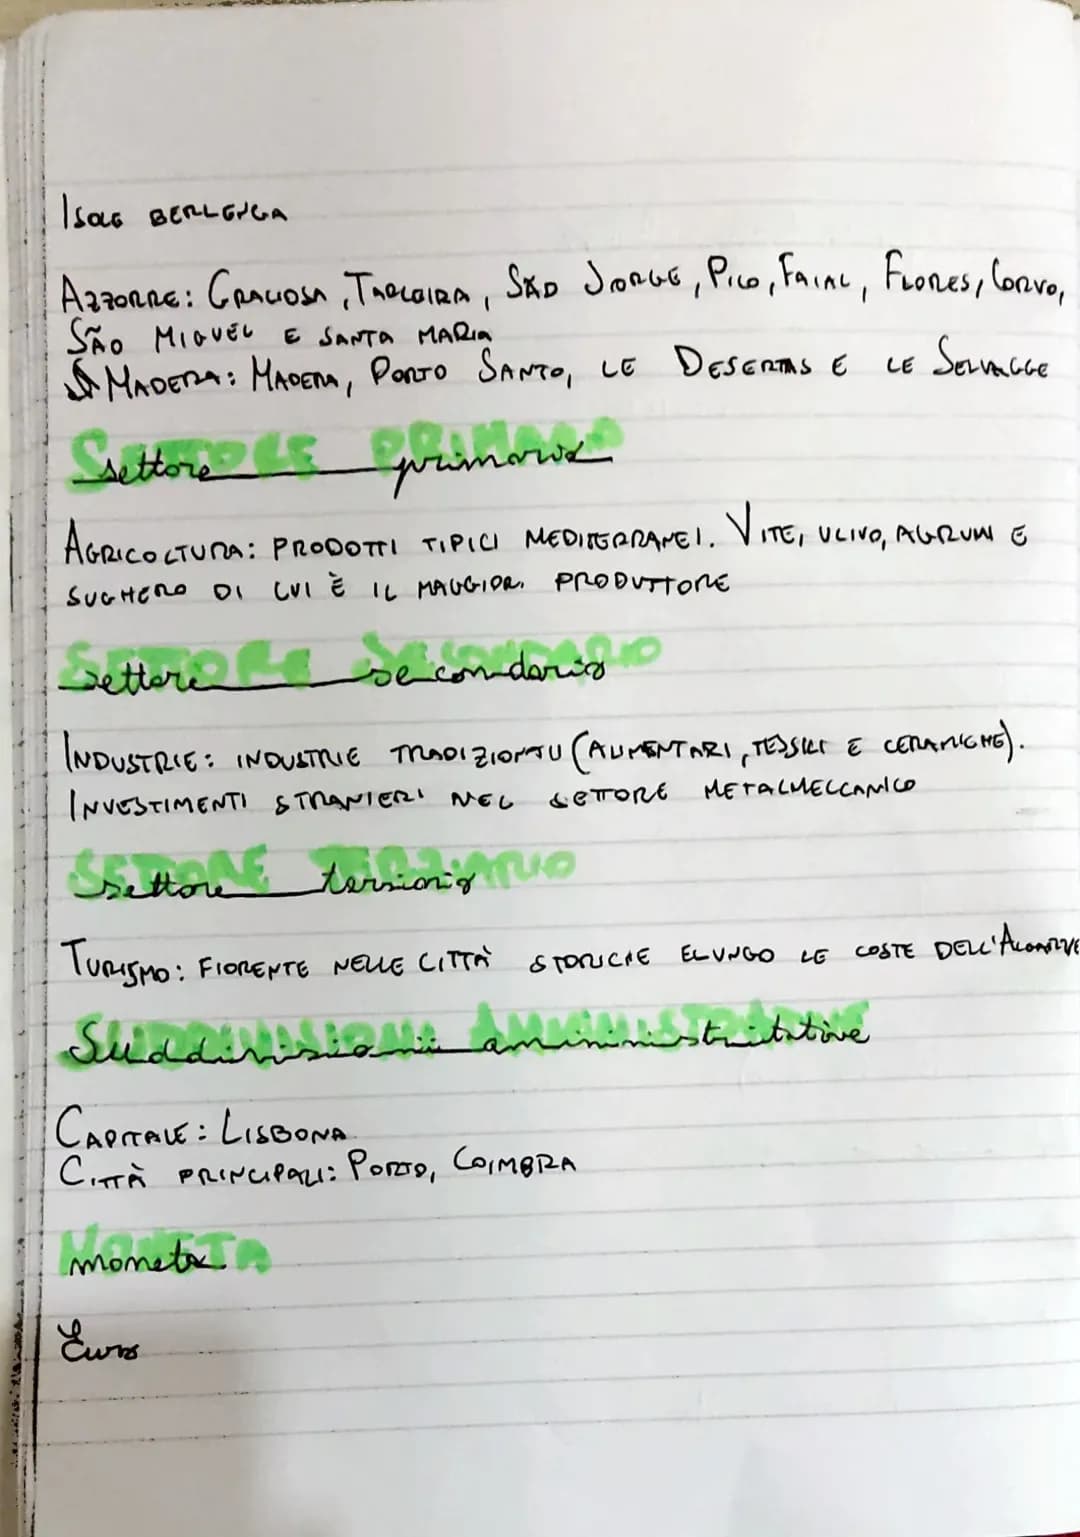 Isole BERLENGA
AZZORRE: GRACIOSA, TARCEIRA, SÃO JORGE, PICO, FAIAL, FLORES, CORVO,
SÃO MIGUEL E SANTA MARIA
MADERA: MADERA, PORTO SANTO, LE DESERTAS E LE SELVAGGE
SETTORE PRIMARIO
settore primario
AGRICOLTURA: PRODOTTI TIPICI MEDITERRANEI. VITE, ULIVO, AGRUMI E
SUGHERO DI CUI È IL MAGGIOR PRODUTTORE
SETTORE SECONDARIO
settore secondario
INDUSTRIE: INDUSTRIE TRADIZIONALI (ALIMENTARI, TESSILI E CERAMICHE).
INVESTIMENTI STRANIERI NEL SETTORE METALMECCANICO
SETTORE TERZIARIO
settore terziario
TURISMO: FIORENTE NELLE CITTÀ STORICHE E LUNGO LE COSTE DELL'ALGARVE
SUDDIVISIONI AMMINISTRATIVE
Suddivisioni amministritative
CAPITALE: LISBONA
CITTÀ PRINCIPALI: PORTO, COIMBRA
MONETA
moneta
Euro